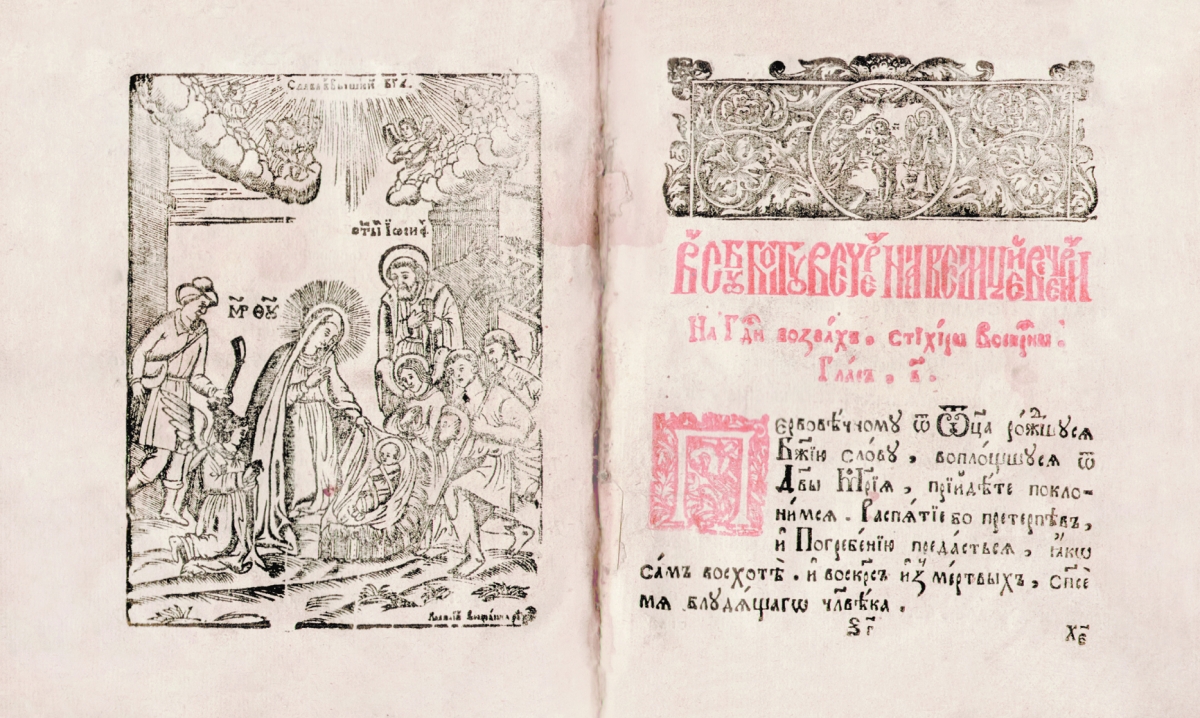 Слава въвышни бгꙋ.
ст҃ы Іѡсиѳ
М҃Р Ѳ҃Ꙋ
В̾ Сꙋ́бботꙋ вечер̾ на велицѣй вечерни
На Гд҃и воззва́хъ . стїхи́ры Воскр҃ны .
Гла́съ . в҃ .
Первовѣ́чномꙋ ѿ Ѻц҃а ро́жшꙋся
Бж҃їю сло́вꙋ , вопло́щшꙋся ѿ
Дв҃ы Мр҃їѧ , прїидѣ́те покло-
ни́мся . Распѧ́тїе бо претерпѣ́въ ,
и҆ Погребе́нїю преда́стьсѧ , ꙗ҆́кѡ
са́мъ восхотѣ̀ . и҆ воскр҃съ и҆з̾ ме́ртвыхъ , сп҃се
мѧ блꙋдѧ́щагѡ чл҃вѣ́ка .
ѕ҃і